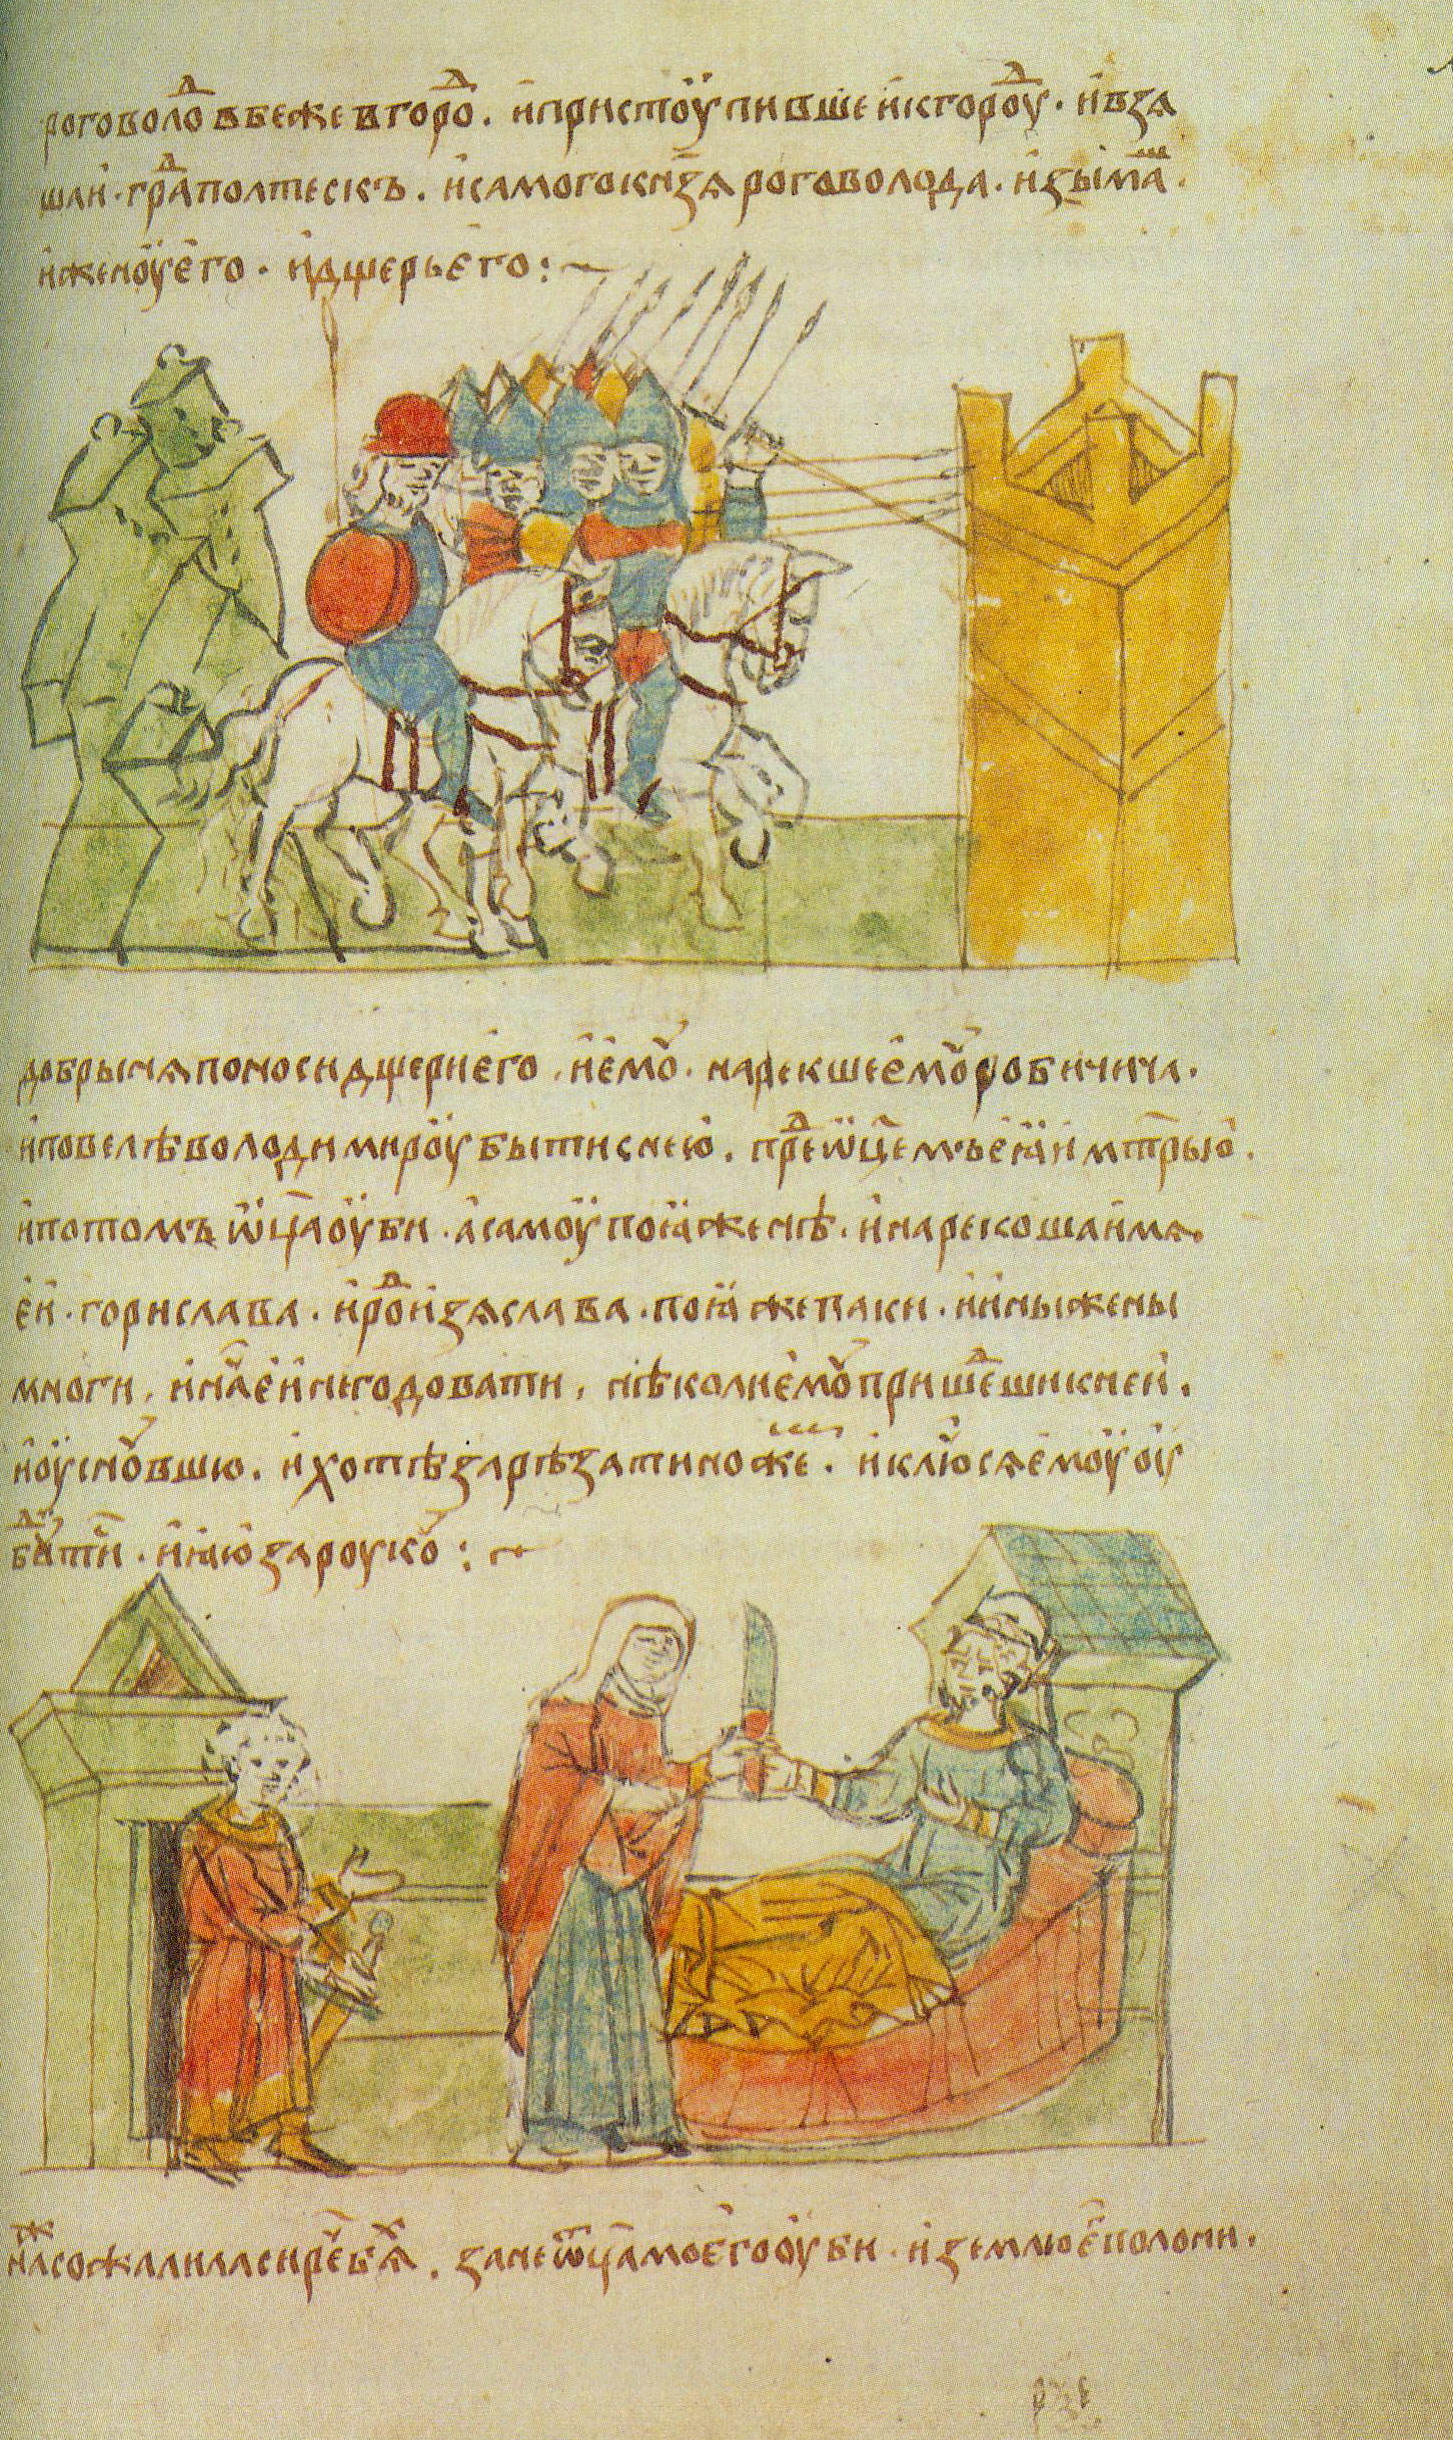 роговоло́д вбеже вгоро́д. и҆пристоу҆пивше и҆кгородоу. и҆взѧ
шаи҆. гра́д полтескъ. и҆самогокнѧ҃зѧ роговолода. и҆зыима́ша.
и҆женоу҆е҆го. и҆дщерье҆го:~
добрынѧпоносидщерие҆го. и҆е҆моу҆. нарекшее҆моу҆робичича.
и҆повелѣволодимироу҆бытиснею҆. пре́дѿц҃емъее҆ꙗ҆и҆мт҃рью҆.
и҆потомъѿц҃аоу҆би. а҆самоу҆поꙗ҆женѣ. и҆нарекошаи҆мѧ
е҆и҆. горислава. и҆ро́ди҆зѧслава. поꙗ҆жепаки. и҆и҆ныжены
многи. и҆нача̑е҆и҆негодовати. нѣколие҆моу҆прише́дшикнеи҆.
и҆оу҆сноу҆вшю. и҆хотѣзарѣзатиножеⷨ. и҆ключи̑сѧе҆моу҆оу҆
буди́ти҆. и҆ꙗ҆ю҆зароукоу҆:~
ж҃ на̑сожалиласире́чбѧ́х. занеѿц҃амоее҆гооу҆би. и҆землюе҆полони.
рзе